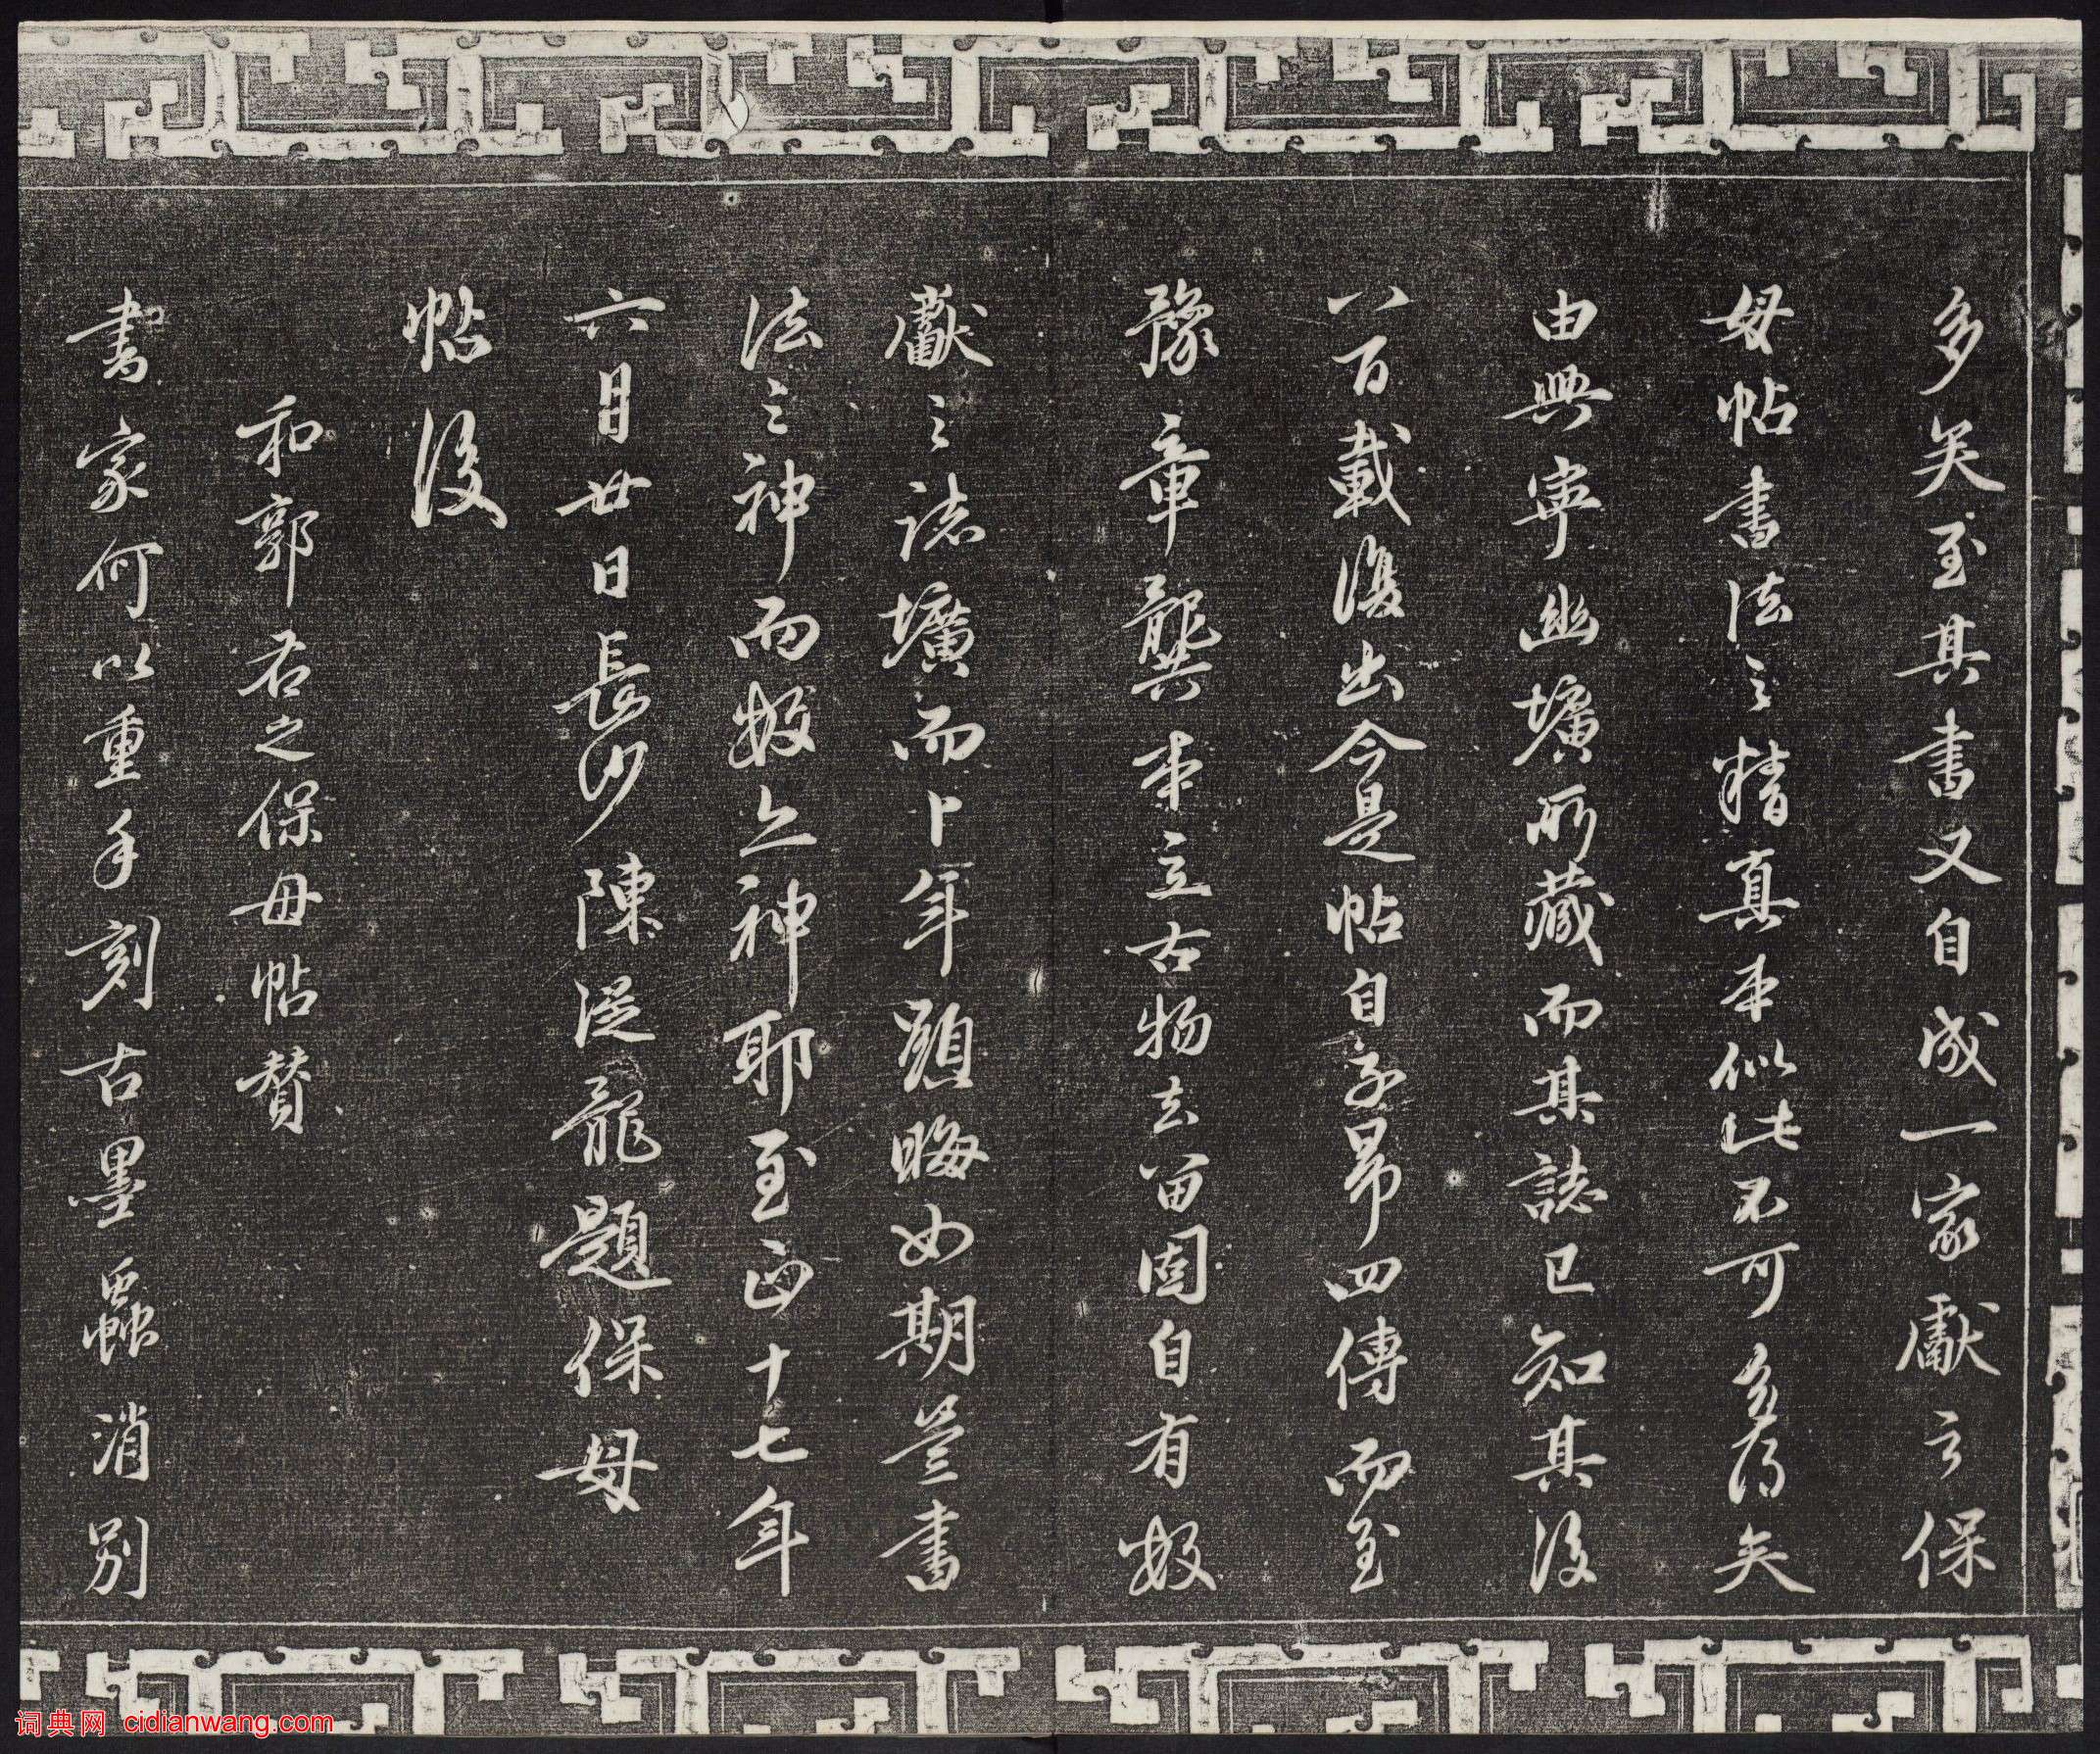 多矣至其書又自成一家獻之保
母帖書法之精真本似此不可多得矣
由興寧幽壙所藏而其誌已知其後
八百載復出今是帖自子昂四傳而至
豫章龔本立古物去留固自有數
獻之誌壙而卜年顯晦如期豈書
法之神而數亦神耶至正十七年
六月廿日長沙陳從龍題保母
帖後
和郭右之保母帖贊
書家何以重手刻古墨蟲消別
词典网 cidianwang.com